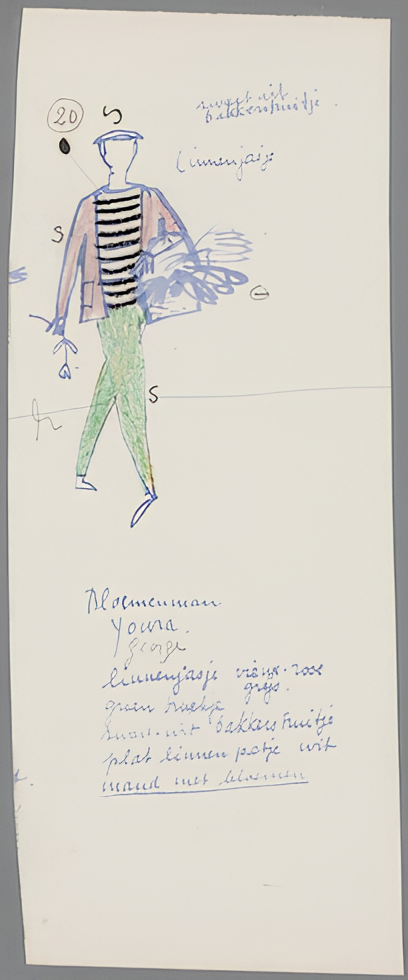 20
S
zwart wit
bakkerstruitje
linnenjasje
S
S
Bloemenman
Youra.
george
linnenjasje vieux-rose
grijs.
groen broekje
zwart-wit bakkerstruitje
plat linnen petje wit
mand met bloemen